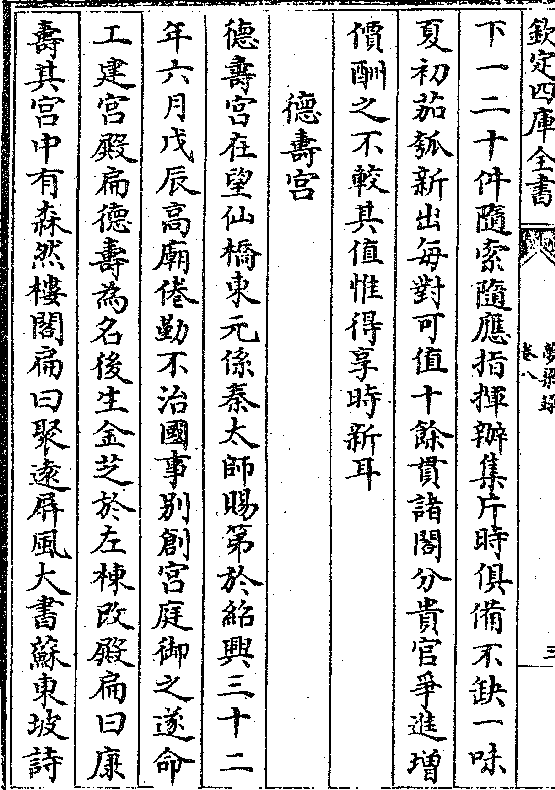 欽定四庫全書
夢粱錄
卷八
三
下一二十件隨索隨應指揮辦集片時俱備不缺一味
夏初茄瓠新出每對可值十餘貫諸閣分貴官爭進增
價酬之不較其值惟得享時新耳
德壽宮
德壽宮在望仙橋東元係秦太師賜第於紹興三十二
年六月戊辰高廟倦勤不治國事別創宮庭御之遂命
工建宮殿扁德壽為名後生金芝於左棟改殿扁曰康
壽其宮中有森然樓閣扁曰聚遠屏風大書蘇東坡詩